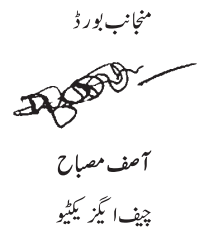 منجانب بورڈ
آصف مصباح
چیف ایگزیکٹیو